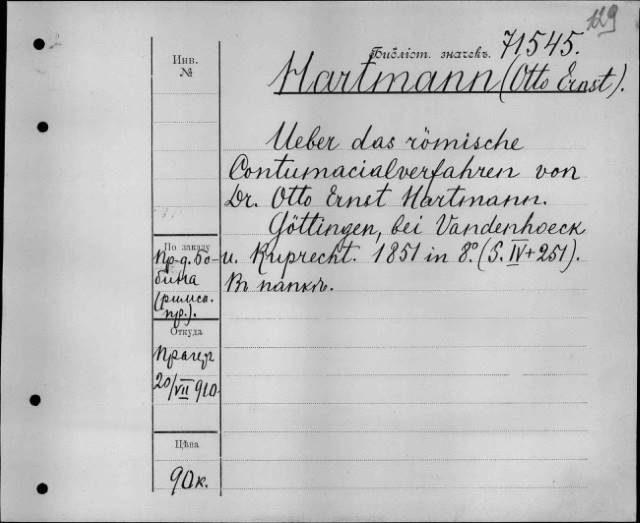 129
Библіот. значекъ. 71545.
Инв.
№
Hartmann (Otto Ernst).
Ueber das römische
Contumacialverfahren von
Dr. Otto Ernst Hartmann.
Göttingen, bei Vandenhoeck
u. Ruprecht. 1851 in 8º. (S. IV + 251).
Въ папкѣ.
По заказу
Пр-д. Бо-
бина
(римск.
пр.).
Откуда
Прагеръ
20/VII 910
Цѣна
90 к.